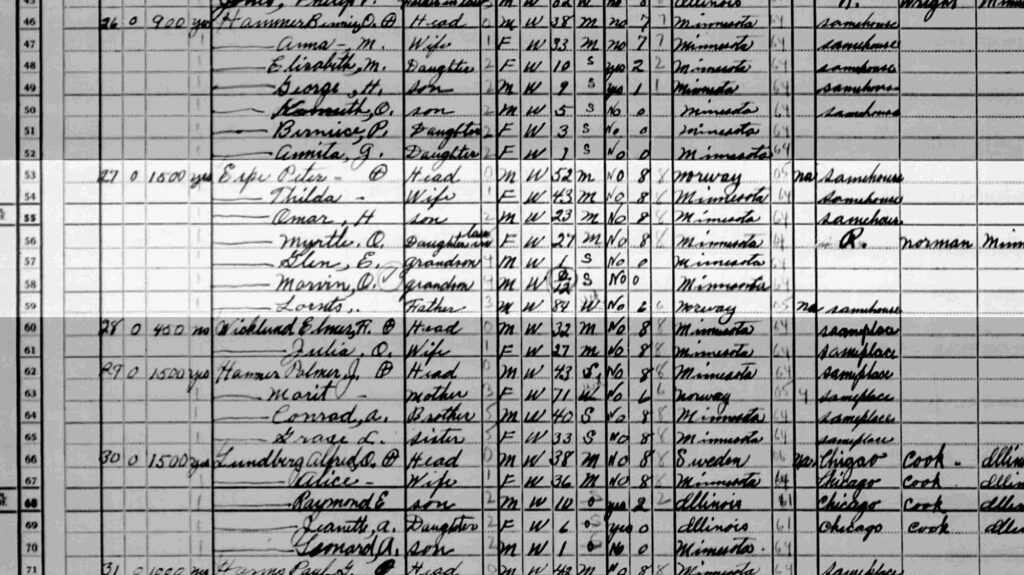 46 26 0 900 yes Hammer O. Head 0 M W 38 M no 7 7 Minnesota samehouse
47 Anna M. Wife 1 F W 33 M no 7 7 Minnesota 64 samehouse
48 Elizabeth, M. Daughter 2 F W 10 S yes 2 2 Minnesota 64 samehouse
49 George, H. son 2 M W 9 S yes 1 1 64 samehouse
50 Kenneth, O. son 2 M W 5 S No 0 Minnesota 64 samehouse
51 Bernice, P. Daughter 2 F W 3 S No 0 Minnesota
52 G. Daughter 2 F W 1 S No 0 Minnesota 64
53 27 0 1500 yes Espe Peter Head 0 M W 52 M No 8 8 Norway 05 na samehouse
54 Thilda Wife 1 F W 43 M No 8 8 Minnesota 64 samehouse
55 Omar, H son 2 M W 23 M No 8 8 Minnesota 64
56 Myrtle, O. Daughter in law F W 27 M No 8 8 Minnesota 64 R. Norman Minn
57 Glen, E. grandson 4 M W 1 S No 0 Minnesota 64
58 Marvin, O. grandson 4 M W S No 0 Minnesota 64
59 Father 3 M W 84 W No 6 6 Norway 05 na samehouse
60 28 0 450 no Wicklund Elmer, R. Head 0 M W 32 M No 8 8 Minnesota 64 sameplace
61 Julia, O. Wife 1 F W 27 M No 8 8 Minnesota 64 sameplace
62 29 0 1500 yes Hammer Palmer J. Head 0 M W 43 S No 8 8 Minnesota 64 sameplace
63 Marit mother 3 F W 71 W No 6 Norway 05 sameplace
64 Conrad, A. Brother 5 M W 40 S No 8 8 Minnesota 64 sameplace
65 Grace L. sister 5 F W 33 S No 8 8 Minnesota 64 sameplace
66 30 0 1500 yes Lundberg Alfred, O. Head 0 M W 38 M No 8 8 Sweden Cook Illin
67 Alice Wife 1 F W 36 M No 8 8 Minnesota 64 Chicago Cook Illin
68 Raymond E son 2 M W 10 yes 2 2 Illinois 61 Chicago Cook Illin
69 A. Daughter 2 F W 6 yes 0 Illinois 61 Chicago Cook Illin
70 Leonard, A. son 2 M W 1 No 0 Minnesota
71 31 Paul G. Head 0 M W M No 8 8 Minnesota sameplace